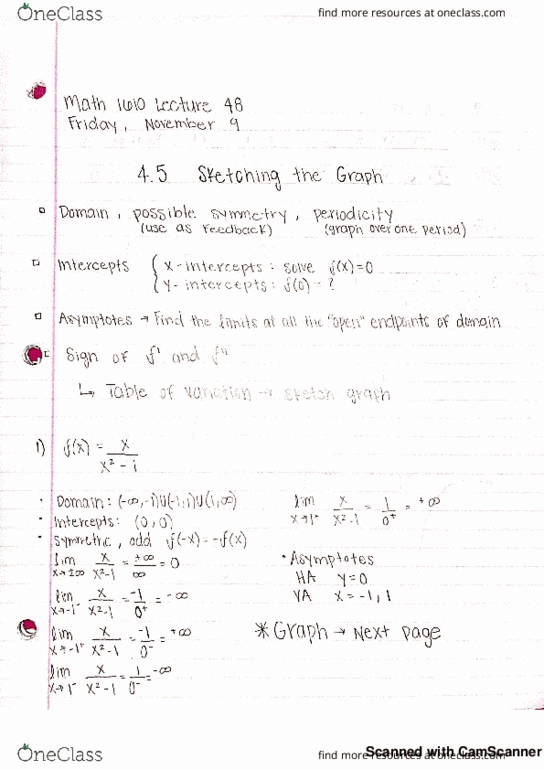 OneClass
find more resources at oneclass.com
Math 1610 Lecture 48
Friday, November 9
4.5 Sketching the Graph
Domain, possible symmetry, periodicity
(use as feedback) (graph over one period)
Intercepts { x-intercepts: solve f(x)=0
y-intercepts: f(0)=?
Asymptotes → Find the limits at all the "open" endpoints of domain
Sign of f' and f"
↳ Table of variation → sketch graph
1) f(x) = x / x²-1
· Domain: (-∞,-1)U(-1,1)U(1,∞)
· Intercepts: (0,0)
· Symmetric, odd f(-x)=-f(x)
lim x→±∞ x / x²-1 = ±∞ / ∞ = 0
lim x→-1⁻ x / x²-1 = -1 / 0⁺ = -∞
lim x→-1⁺ x / x²-1 = -1 / 0⁻ = +∞
lim x→1⁻ x / x²-1 = 1 / 0⁻ = -∞
lim x→1⁺ x / x²-1 = 1 / 0⁺ = +∞
· Asymptotes
HA y=0
VA x=-1,1
*Graph → Next page
OneClass
find more resources at oneclass.com
Scanned with CamScanner